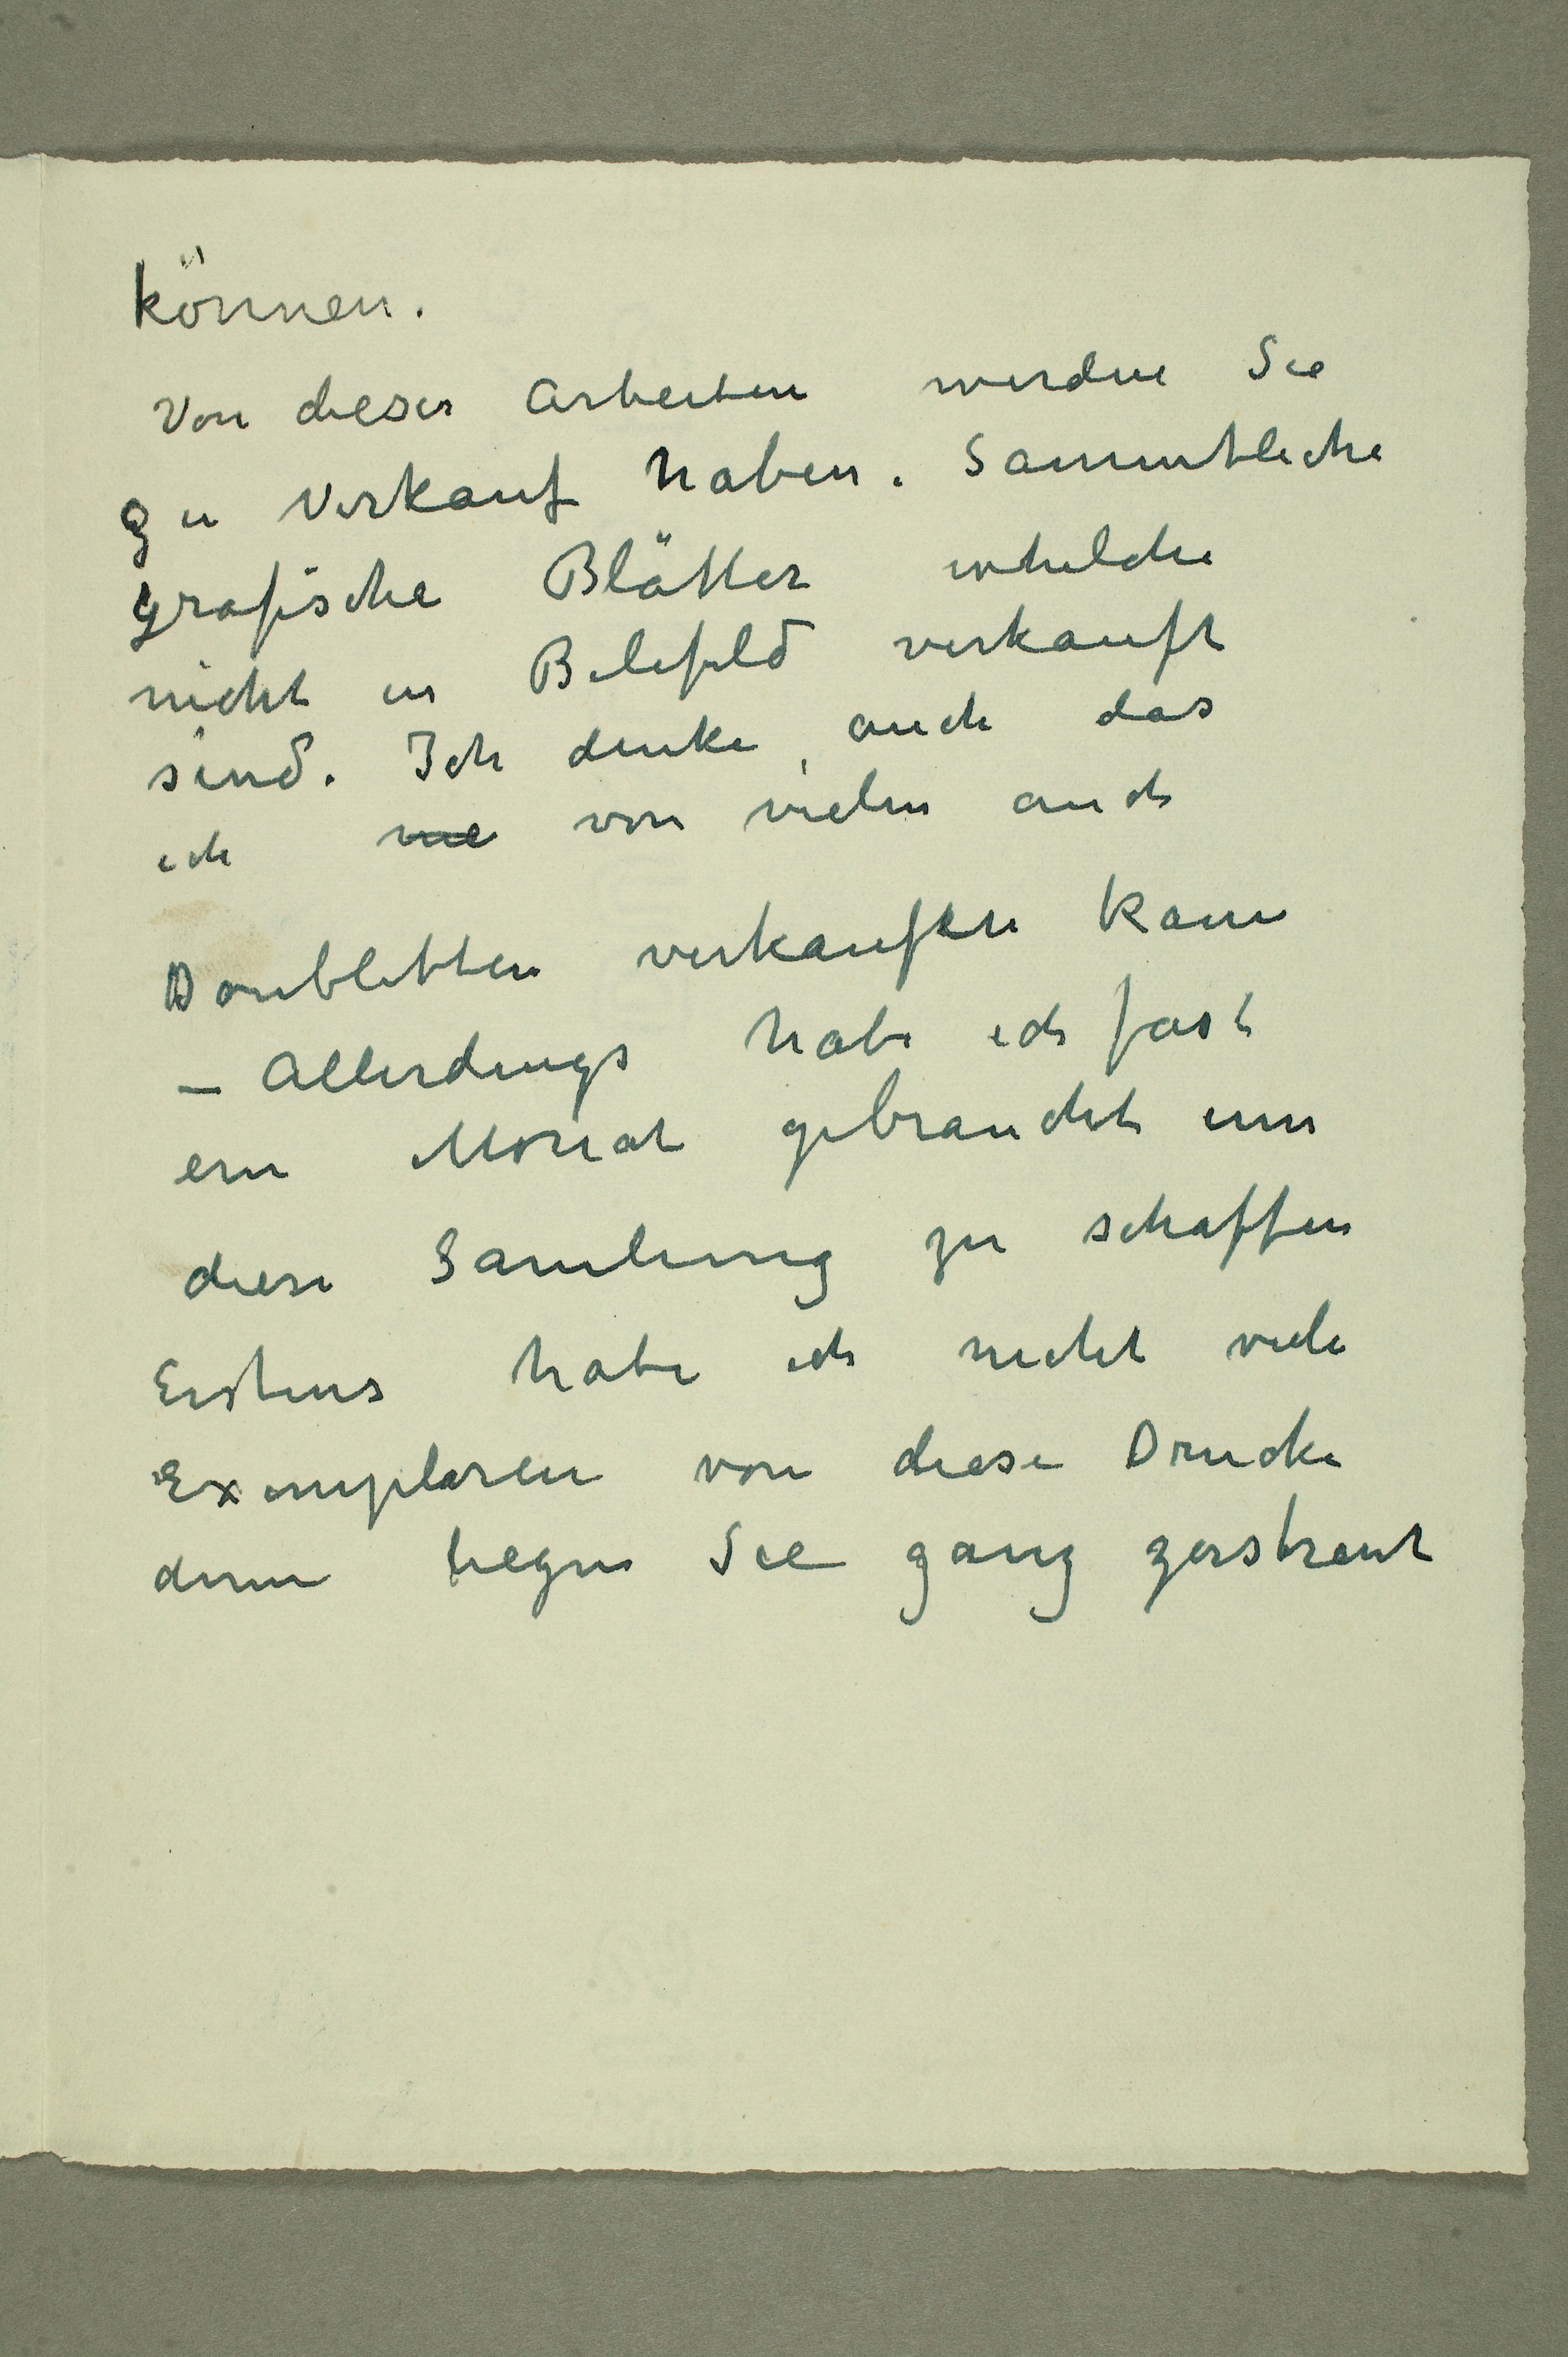 können.
Von dieser Arbeiten werden Sie
zu Verkauf haben. Sammtliche
grafische Blätter whelche
nicht in Bilefeld verkauft
sind. Ich denke, auch das
ich me von vielen auch
Doubletten verkaufen kann
– Allerdings habe ich fast
ein Monat gebraucht um
diese Samlung zu schaffen
Erstens habe ich nicht viele
Exemplaren von diese Drucke
denn liegen Sie ganz zerstreut